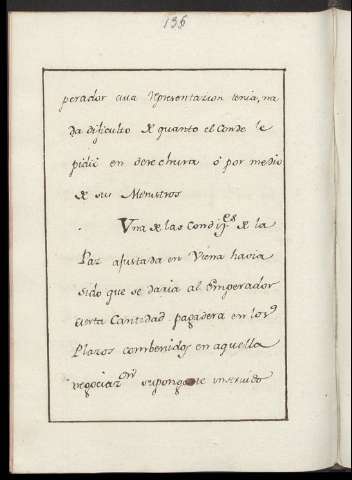 136
perador cuia representazion tenia, na
da dificulto de quanto el Conde le
pidió en derechura ó por medio
de sus Ministros
Una de las Condi.es de la
Paz ajustada en Viena havia
sido que se daria al Emperador
cierta Cantidad pagadera en los
Plazos combenidos en aquella
negociaz.on supongo te instruido